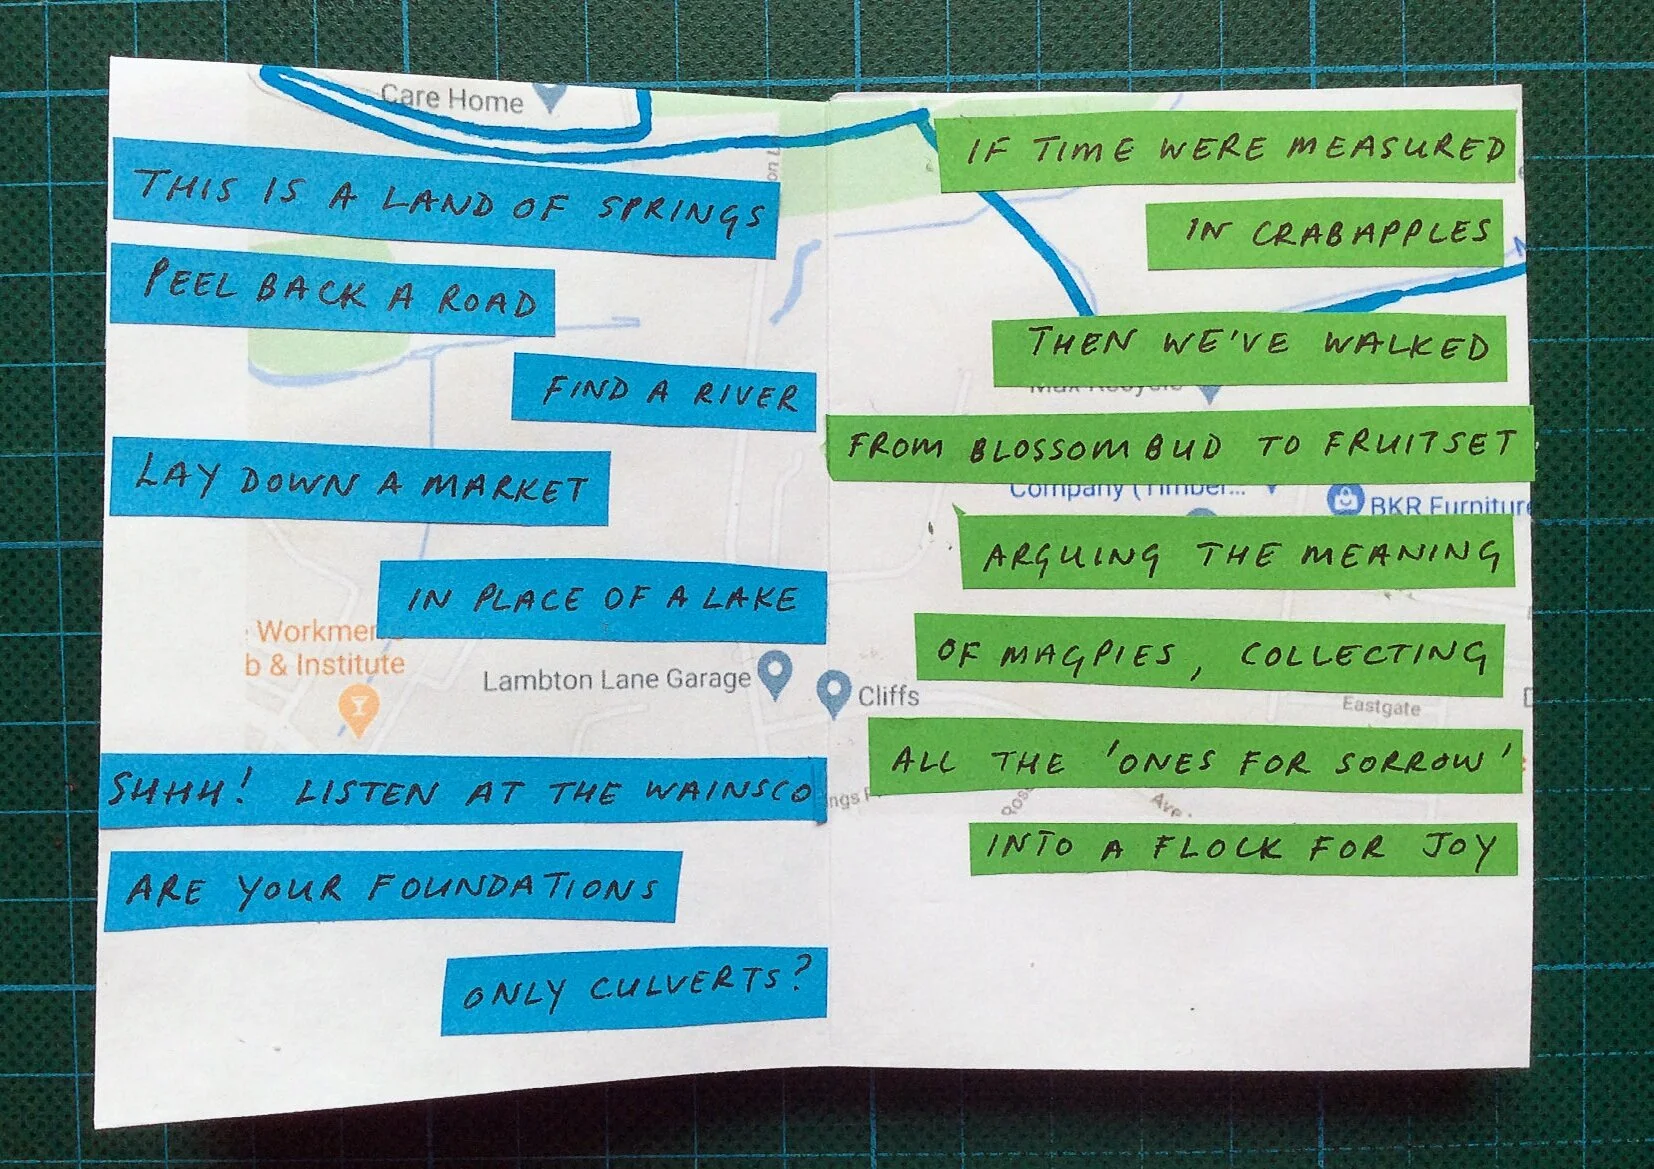 Care Home
THIS IS A LAND OF SPRINGS
PEEL BACK A ROAD
FIND A RIVER
LAY DOWN A MARKET
IN PLACE OF A LAKE
b & Institute
Lambton Lane Garage
SHHH! LISTEN AT THE WAINSCO
ARE YOUR FOUNDATIONS
ONLY CULVERTS?
IF TIME WERE MEASURED
IN CRABAPPLES
THEN WE'VE WALKED
FROM BLOSSOM BUD TO FRUITSET
Company (Timber...
BKR Furniture
ARGUING THE MEANING
OF MAGPIES, COLLECTING
Cliffs
Eastgate
ALL THE 'ONES FOR SORROW'
Ave
INTO A FLOCK FOR JOY